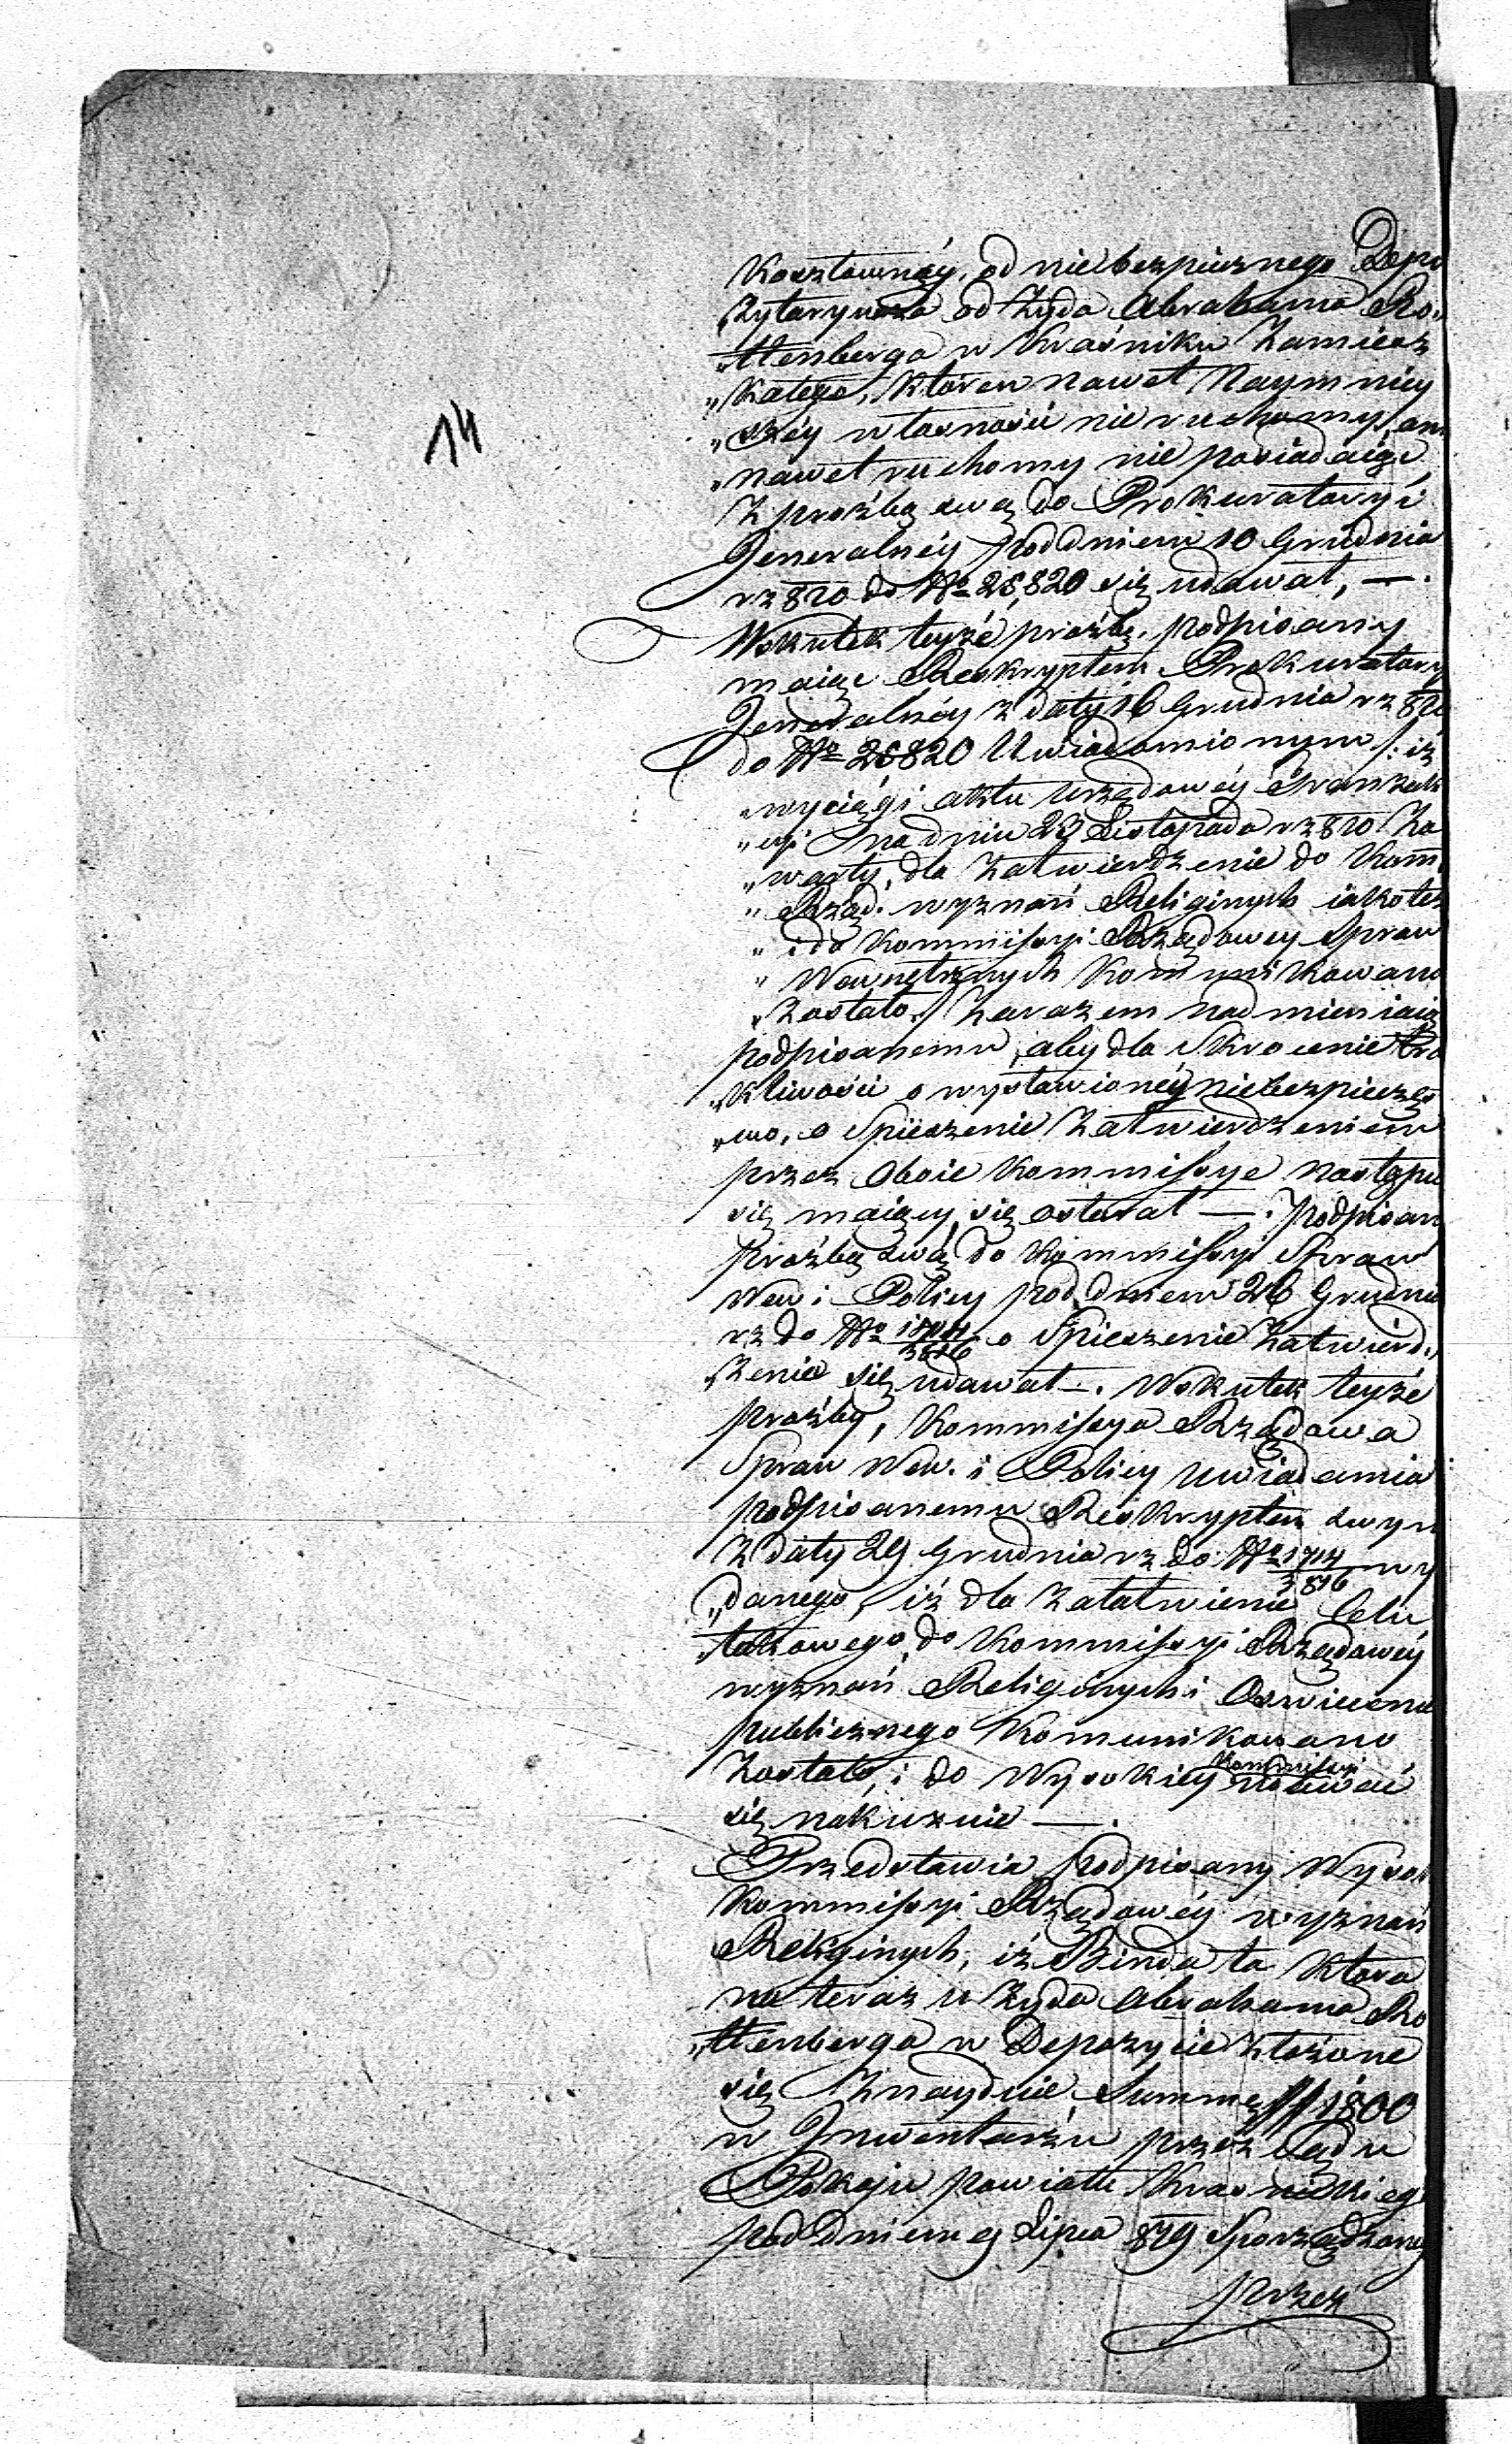 14
Kosztownéy, od niebezpiecznego Depo
„zytaryusza od Żyda Abrahama Ro„
„ttenberga w Kraśniku Zamiesz
„kałego, któren nawet Naymniey
„széy własności nieruchomy, ani
„nawet ruchomy nie posiadaiąc
z prozbą swą do Prokuratoryi
Jeneralnéy pod dniem 10 Grudnia
rz 820 do No 28,820 się udawał, —.
Wskutek teyże prozbę, podpisany
maiąc Reskryptem Prokuratory
Jeneralnéy z daty 16 Grudnia rz 820
do No 28820 Uwiadomionym /: iż
„wyciągi aktu Urzędowéy tranzak
„cyi na dniu 23 Listopada rz 820 Za
„warty, dla zatwierdzenie do Kom̄
„Rząd. wyznań Religinych iakotes
„i do Kommissyi Rządowey Spraw
„Wewnętrznych Kommunikowano
„zostało:/ Zarazem nadmieniaią
podpisanemu, aby dla Skrocenie tro
„skliwości o wystawionéy niebezpieczeń
„stwo, o Spieszenie Zatwierdzeniem
przez oboie Kommissye następu
się maiący, się ostarał —. Podpisany
prozbą swą do Kommissyi Spraw
Wew i Policy pod dniem 26 Grudnia
rz do No 1704/3816 o Spieszenie Zatwierd„
„zenie się udawał —. Wskutek teyże
prozby, Kommissya Rządowa
Spraw Wew. i Policy Uwiadamia
podpisanemu Reskryptem swym
z daty 29 Grudnia rz do No 1704/3816 wy
„danego, iż dla załatwienie Celu
„takowego do Kommissyi Rządowéy
wyznań Religinych i Oswiecenie
publicznego Komunikowano
zostało, i do Wysokiey Kommissyi udawać
się nakaznie —.
Przedstawia podpisany Wysok
Kommissyi Rządowéy wyznań
Religinych, iż Binda ta która
na teraz u Żyda Abrahama Ro
„ttenberga w Depozycie złożone
się znayduie, Summę 1800
w Inwentarzu przez Sądu
Pokoju powiatu Kraśnickieg
pod dniem 9 Lipca 819 Sporządzony
przez